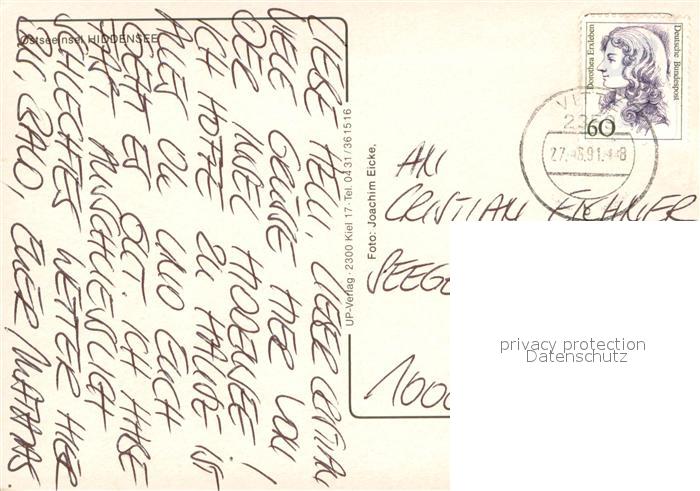 Ostseeinsel HIDDENSEE
LIEBE HELLI, LIEBER CRISTIAN
VIELE GRÜSSE HIER VON
DER INSEL HIDDENSEE!
ICH HOFFE ZU HAUSE IST
ALLES OK UND EUCH
GEHT ES GUT. ICH HABE
FAST AUSSCHLIESSLICH
SCHLECHTES WETTER HIER
BIS BALD, EUER MATTHIAS.
UP-Verlag · 2300 Kiel 17 · Tel. 0431/361516
Foto: Joachim Eicke.
Dorothea Erxleben
Deutsche Bundespost
60
2350
27.-8.91.-8
AN
CRISTIAN EICHNER
SEEGE
1000
privacy protection
Datenschutz